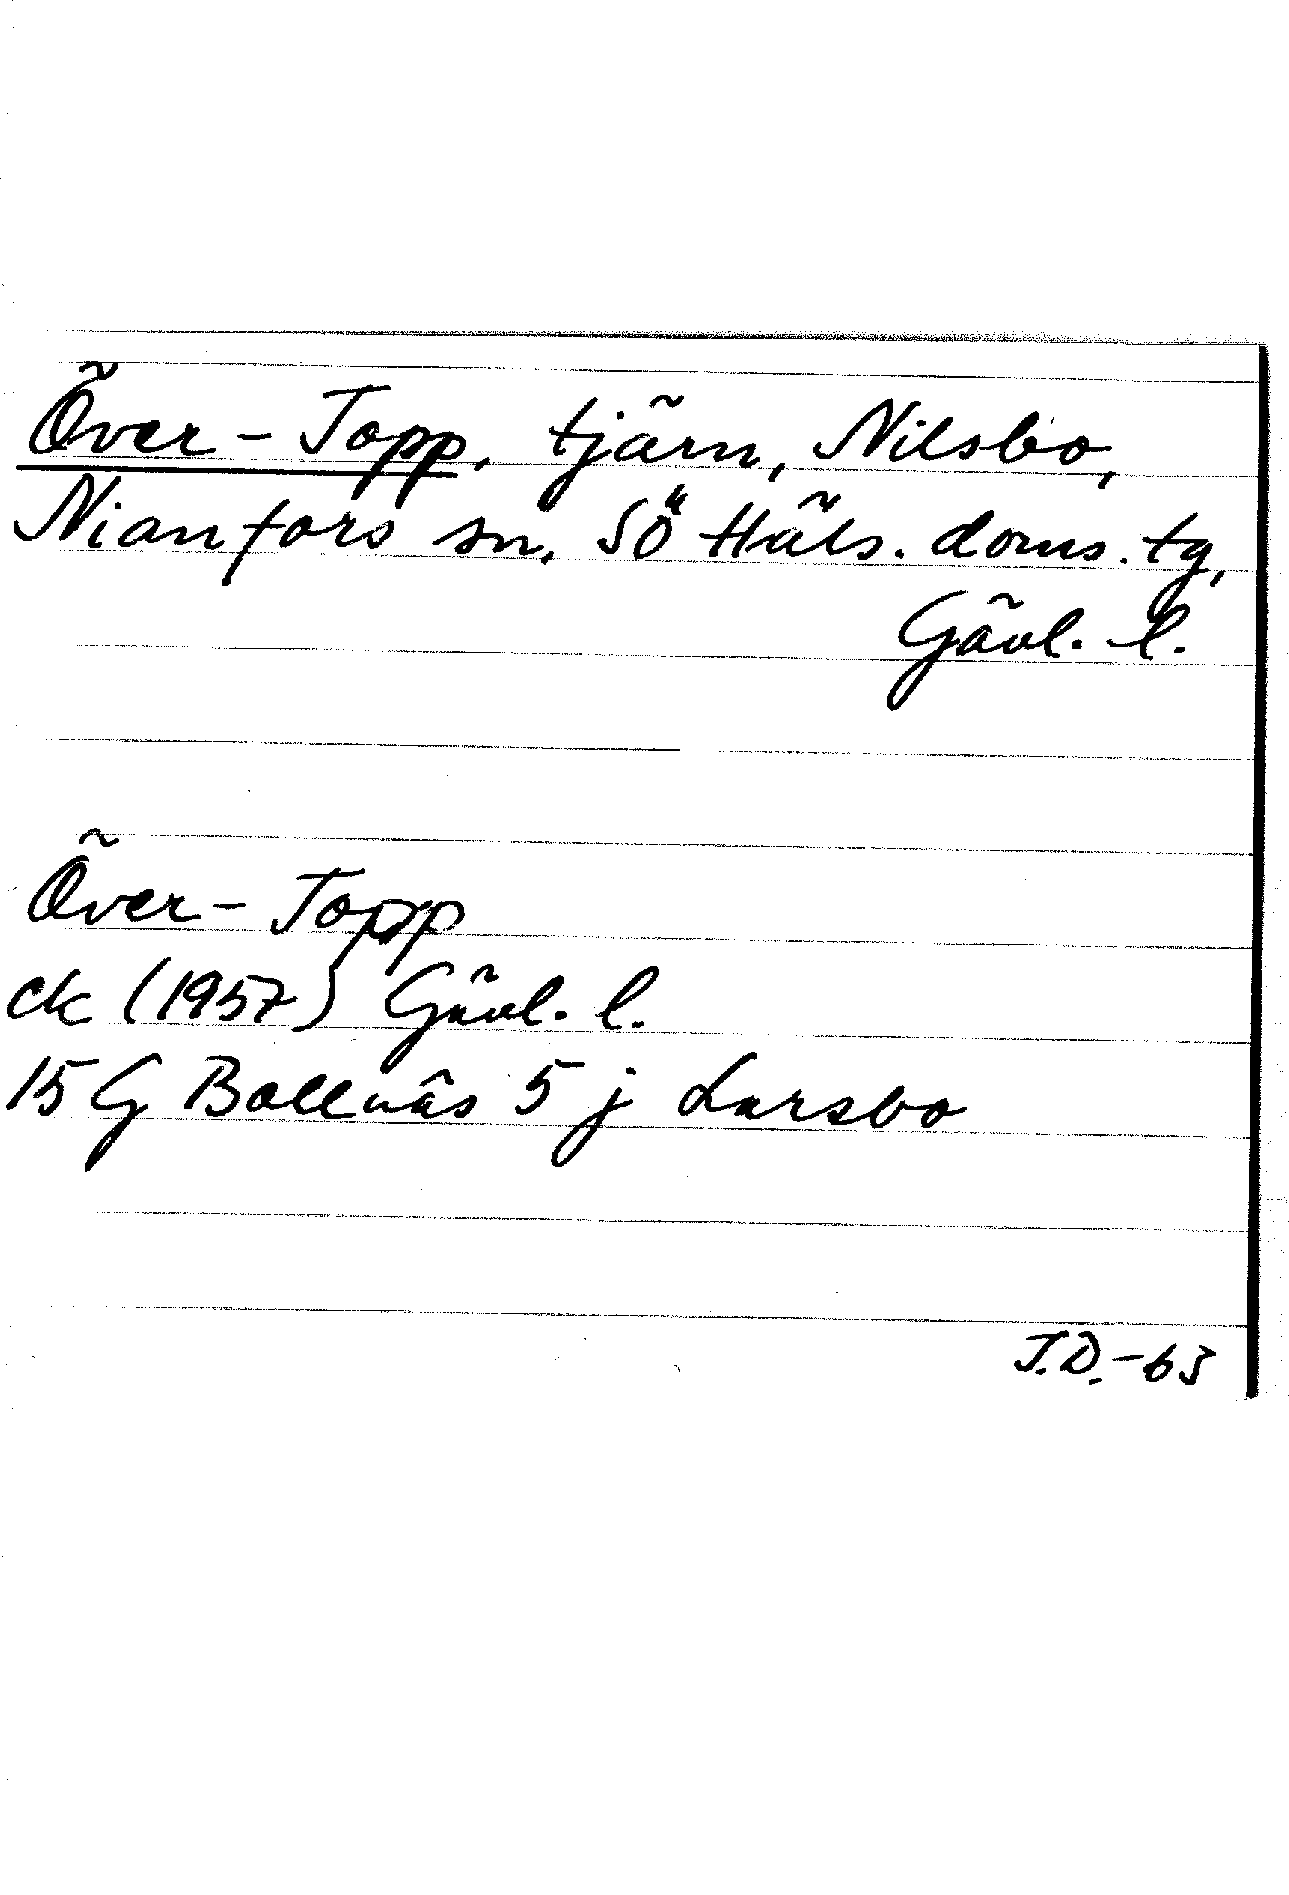 Över-Topp, tjärn, Nilsbo,
Nianfors sn, SÖ Häls. doms. tg,
Gävl. l.
Över-Topp
ek (1957) Gävl. l.
15 G Bollnäs 5 j Larsbo
J.D.-63